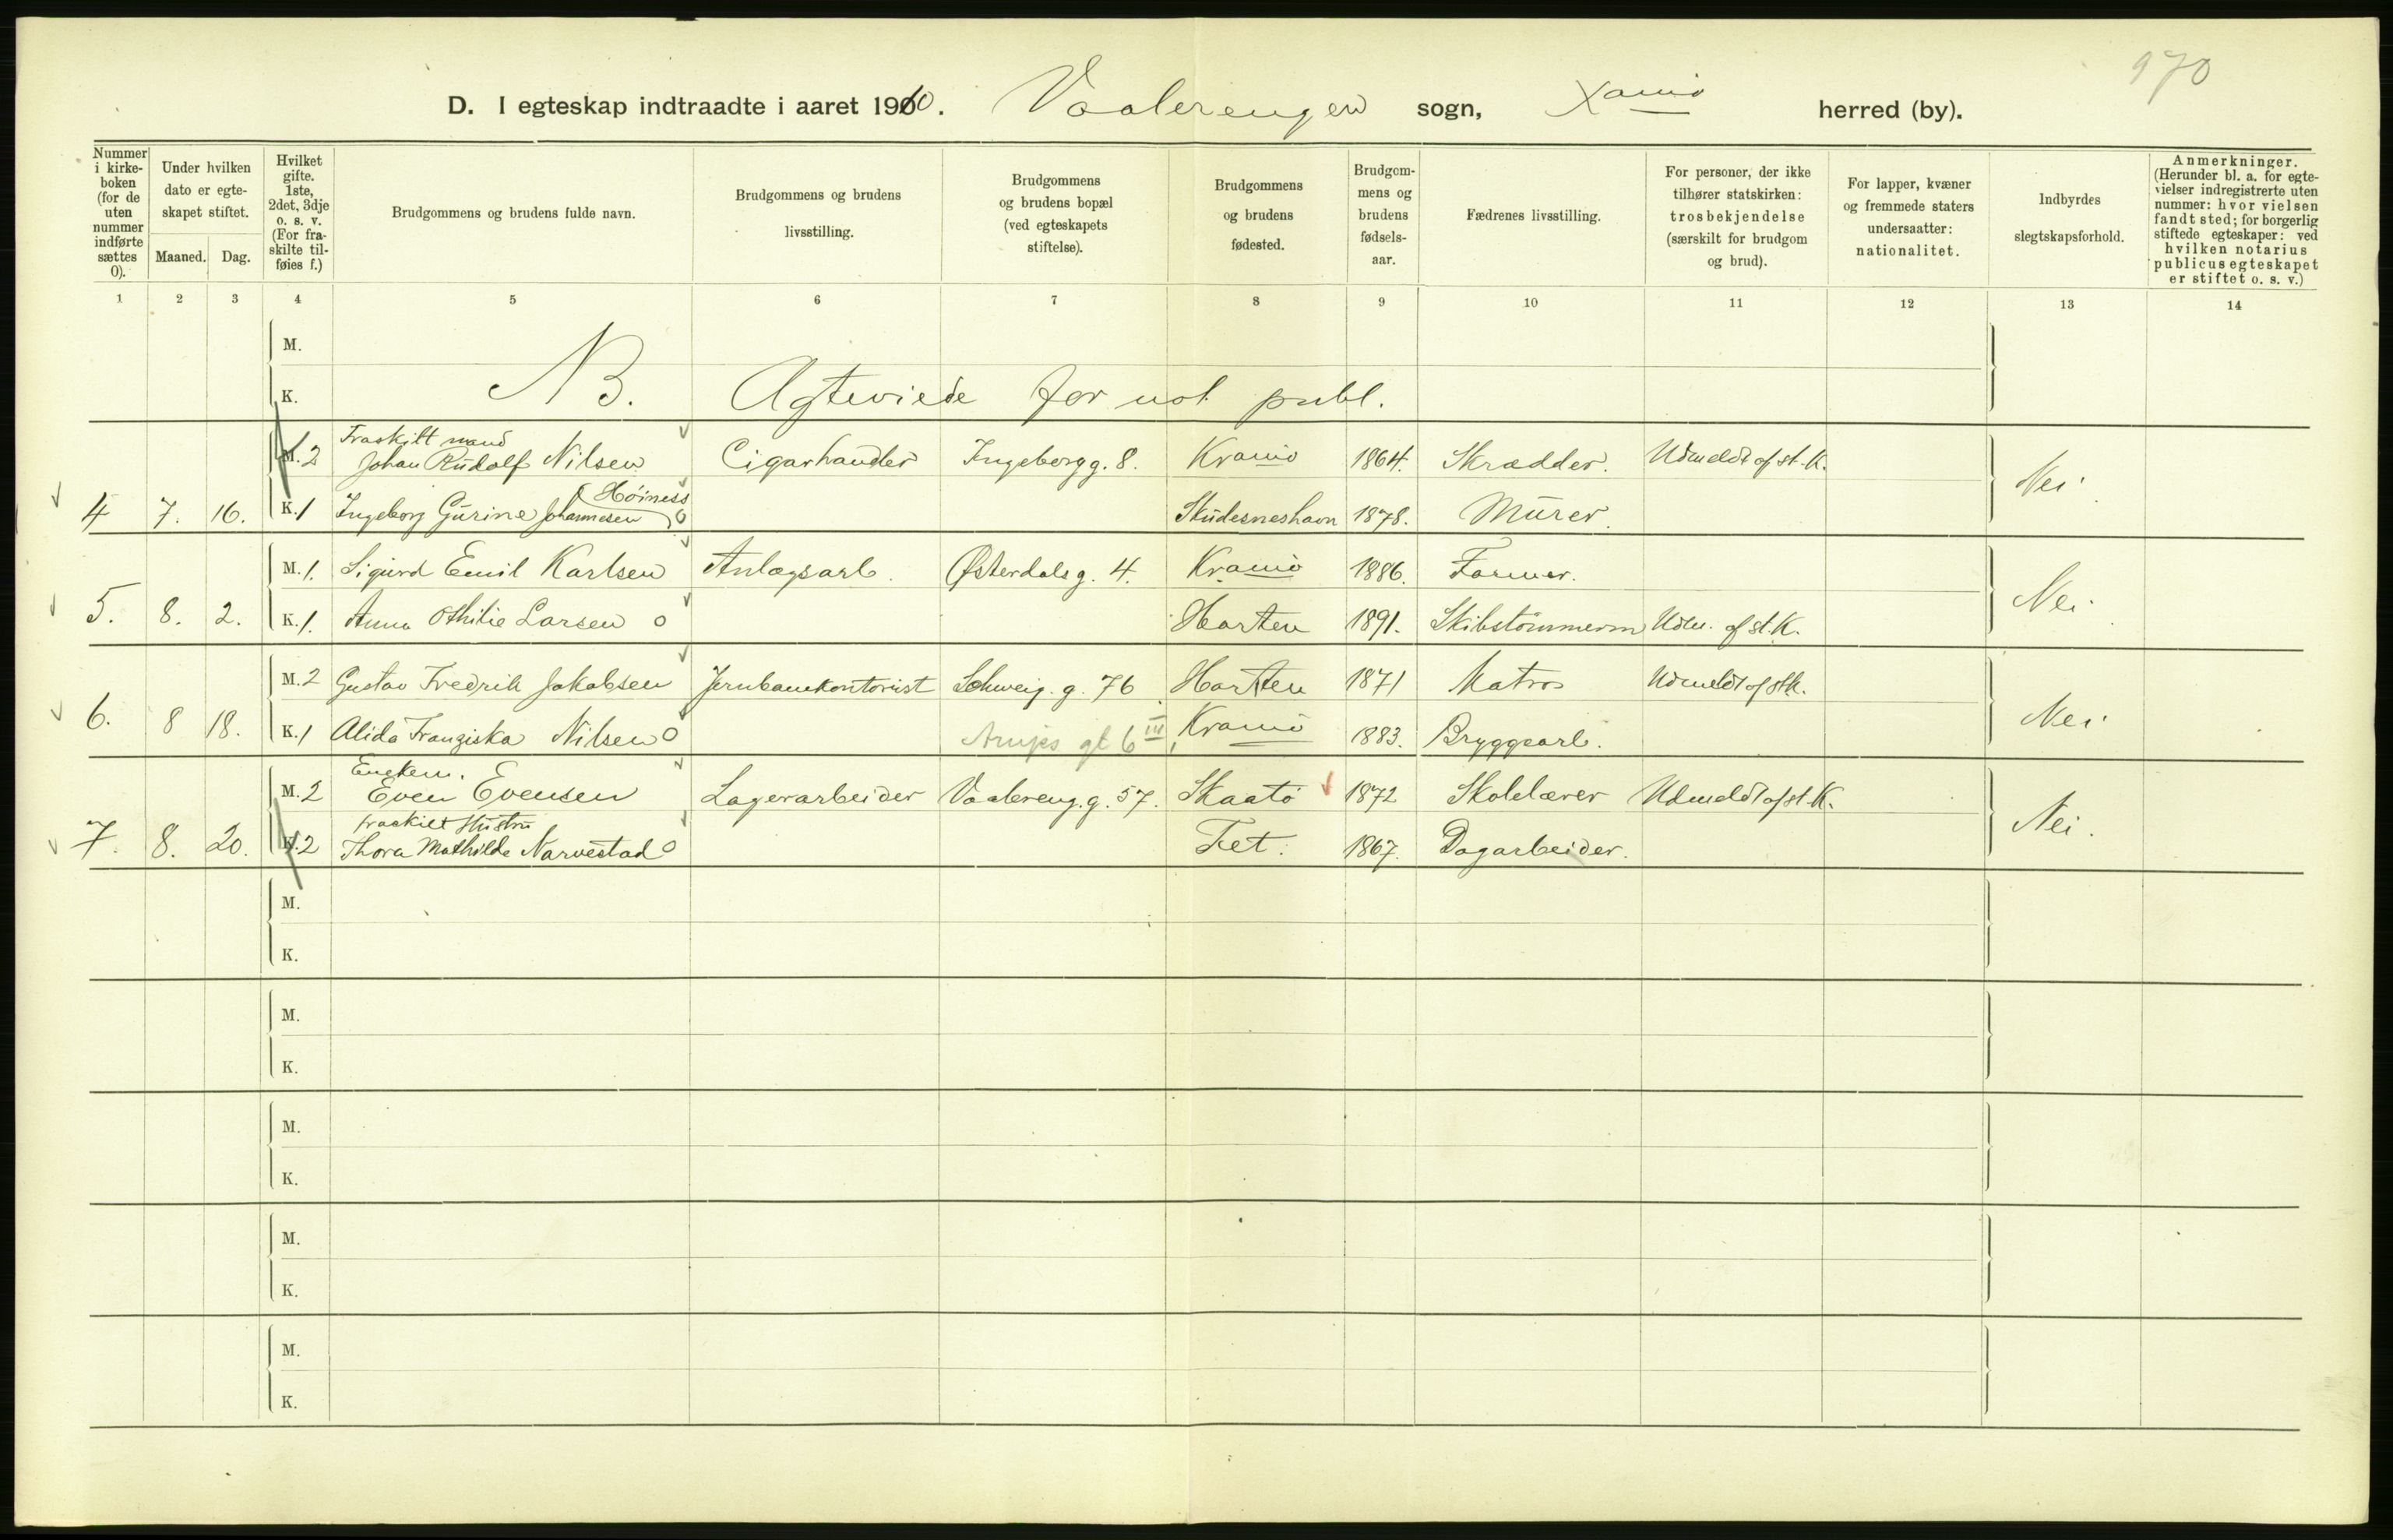 970
D. I egteskap indtraadte i aaret 1910. Vaalerengen sogn, Xania herred (by).
Nummer i kirke-boken (for de uten nummer indførte sættes 0).
Under hvilken dato er egte-skapet stiftet.
Maaned. Dag.
Hvilket gifte. 1ste, 2det, 3dje o. s. v. (For fra-skilte til-føies f.)
Brudgommens og brudens fulde navn.
Brudgommens og brudens livsstilling.
Brudgommens og brudens bopæl (ved egteskapets stiftelse).
Brudgommens og brudens fødested.
Brudgom-mens og brudens fødsels-aar.
Fædrenes livsstilling.
For personer, der ikke tilhører statskirken: trosbekjendelse (særskilt for brudgom og brud).
For lapper, kvæner og fremmede staters undersaatter: nationalitet.
Indbyrdes slegtskapsforhold.
Anmerkninger. (Herunder bl. a. for egte-vielser indregistrerte uten nummer: hvor vielsen fandt sted; for borgerlig stiftede egteskaper: ved hvilken notarius publicus egteskapet er stiftet o. s. v.)
1 2 3 4 5 6 7 8 9 10 11 12 13 14
M.
K. NB. Ægteviede for not publ.
Fraskilt mand
M. 2 Johan Rudolf Nilsen Cigarhandler Ingeborgg. 8. Krania 1864. Skrædder. Udmeldt af st. K.
Høiness
4 7. 16. K. 1 Ingeborg Gurine Johannesen o Skudesneshavn 1878. Murer. Nei.
M. 1. Sigurd Emil Karlsen Anlægsarb. Østerdalsg. 4. Krania 1886. Farmer.
5. 8. 2. K. 1. Anna Othilie Larsen o Horten 1891. Skibstømmerm Udm. af st. K. Nei.
M. 2 Gustav Fredrik Jakobsen Jernbanekontorist Schweig. g. 76 Horten 1871 Matros Udmeldt af st. K.
6. 8 18. K. 1 Alida Franziska Nilsen o Arups gt 6 III Krania 1883. Bryggearb. Nei.
Enkem.
M. 2 Even Evensen Lagerarbeider Vaalereng. g. 57. Skaatø 1872 Skolelærer Udmeldt af st. K.
fraskilt Hustru
7. 8. 20. K. 2 Thora Mathilde Narvestad o Fet. 1867. Dagarbeider. Nei.
M.
K.
M.
K.
M.
K.
M.
K.
M.
K.